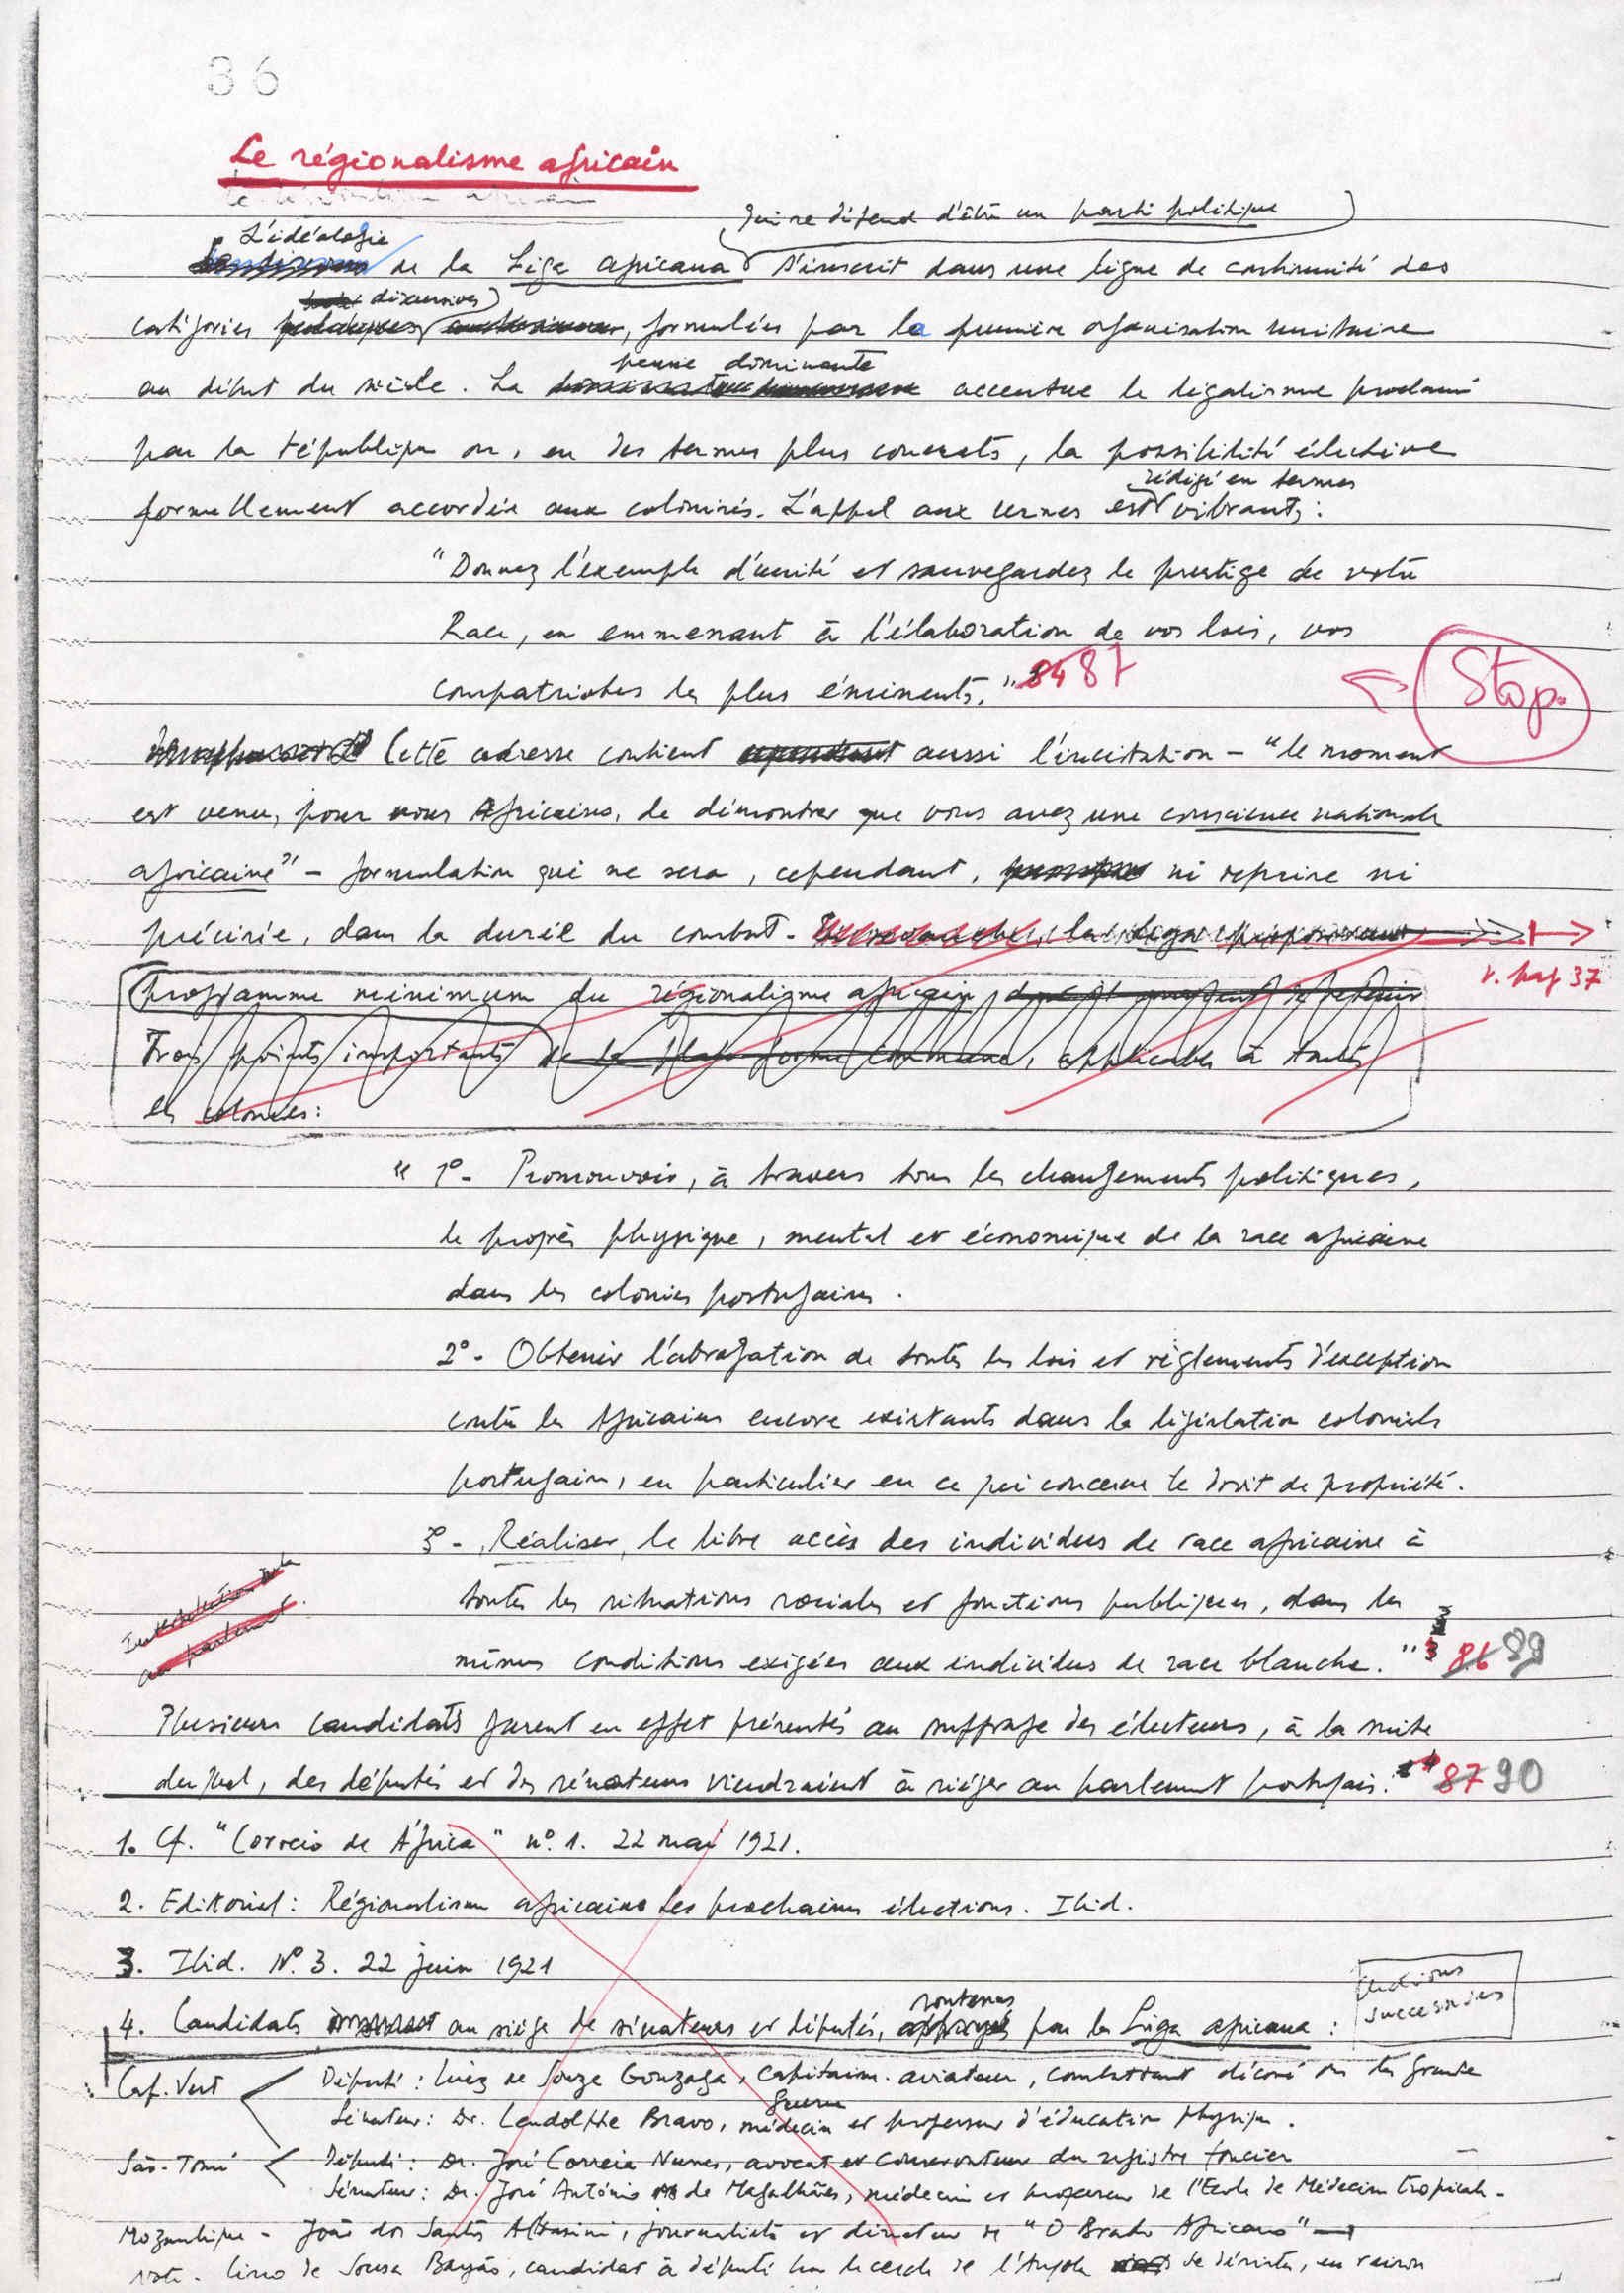 36
Le régionalisme africain
qui se défend d'être un parti politique
L'idéologie
de la Liga africana s'inscrit dans une ligne de continuité des
discursives
catégories formulées par la première organisation unitaire
pensée dominante
au début du siècle. La accentue le légalisme proclamé
par la république ou, en des termes plus concrets, la possibilité élective
rédigé en termes
formellement accordée aux colonisés. L'appel aux urnes est vibrants:
"Donnez l'exemple d'unité et sauvegardez le prestige de votre
Race, en emmenant à l'élaboration de vos lois, vos
compatriotes les plus éminents." 84 87
Stop.
Cette adresse contient cependant aussi l'incitation - "le moment
est venu, pour vous Africains, de démontrer que vous avez une conscience nationale
africaine" - formulation qui ne sera, cependant, ni reprise ni
précisée, dans la durée du combat. la Liga
v. pag 37
programme minimum du régionalisme africain,
Trois points importants de la plate forme commune, applicables à toutes
les colonies:
" 1º- Promouvoir, à travers tous les changements politiques,
le progrès physique, mental et économique de la race africaine
dans les colonies portugaises.
2º- Obtenir l'abrogation de toutes les lois et règlements d'exception
contre les Africains encore existants dans la législation coloniale
portugaise, en particulier en ce qui concerne le droit de propriété.
3º- Réaliser, le libre accès des individus de race africaine à
toutes les situations sociales et fonctions publiques, dans les
mêmes conditions exigées aux individus de race blanche." 3 86 89
au parlement.
Plusieurs candidats furent en effet présentés au suffrage des électeurs, à la suite
duquel, des députés et des sénateurs viendraient à siéger au parlement portugais. 4 87 90
1. Cf. "Correio de África" nº. 1. 22 mai 1921.
2. Editorial: Régionalisme africain. Les prochaines élections. Ibid.
3. Ibid. Nº. 3. 22 juin 1921
élections
successives
soutenus
4. Candidats au siège de sénateurs et députés, appuyés par la Liga africana:
Cap. Vert Député: Luiz de Souza Gonzaga, capitaine. aviateur, combattant décoré de la grande
guerre
Sénateur: Dr. Leudolphe Bravo, médecin et professeur d'éducation physique.
São-Tomé Député: Dr. José Correia Nunes, avocat et conservateur du registre foncier
Sénateur: Dr. José António de Magalhães, médecin et professeur de l'Ecole de Médecine tropicale-
Mozambique - João dos Santos Albasini, journaliste et directeur de "O Brado Africano"
note. de Sousa candidat à député par le cercle de l'Angola se désista, en raison